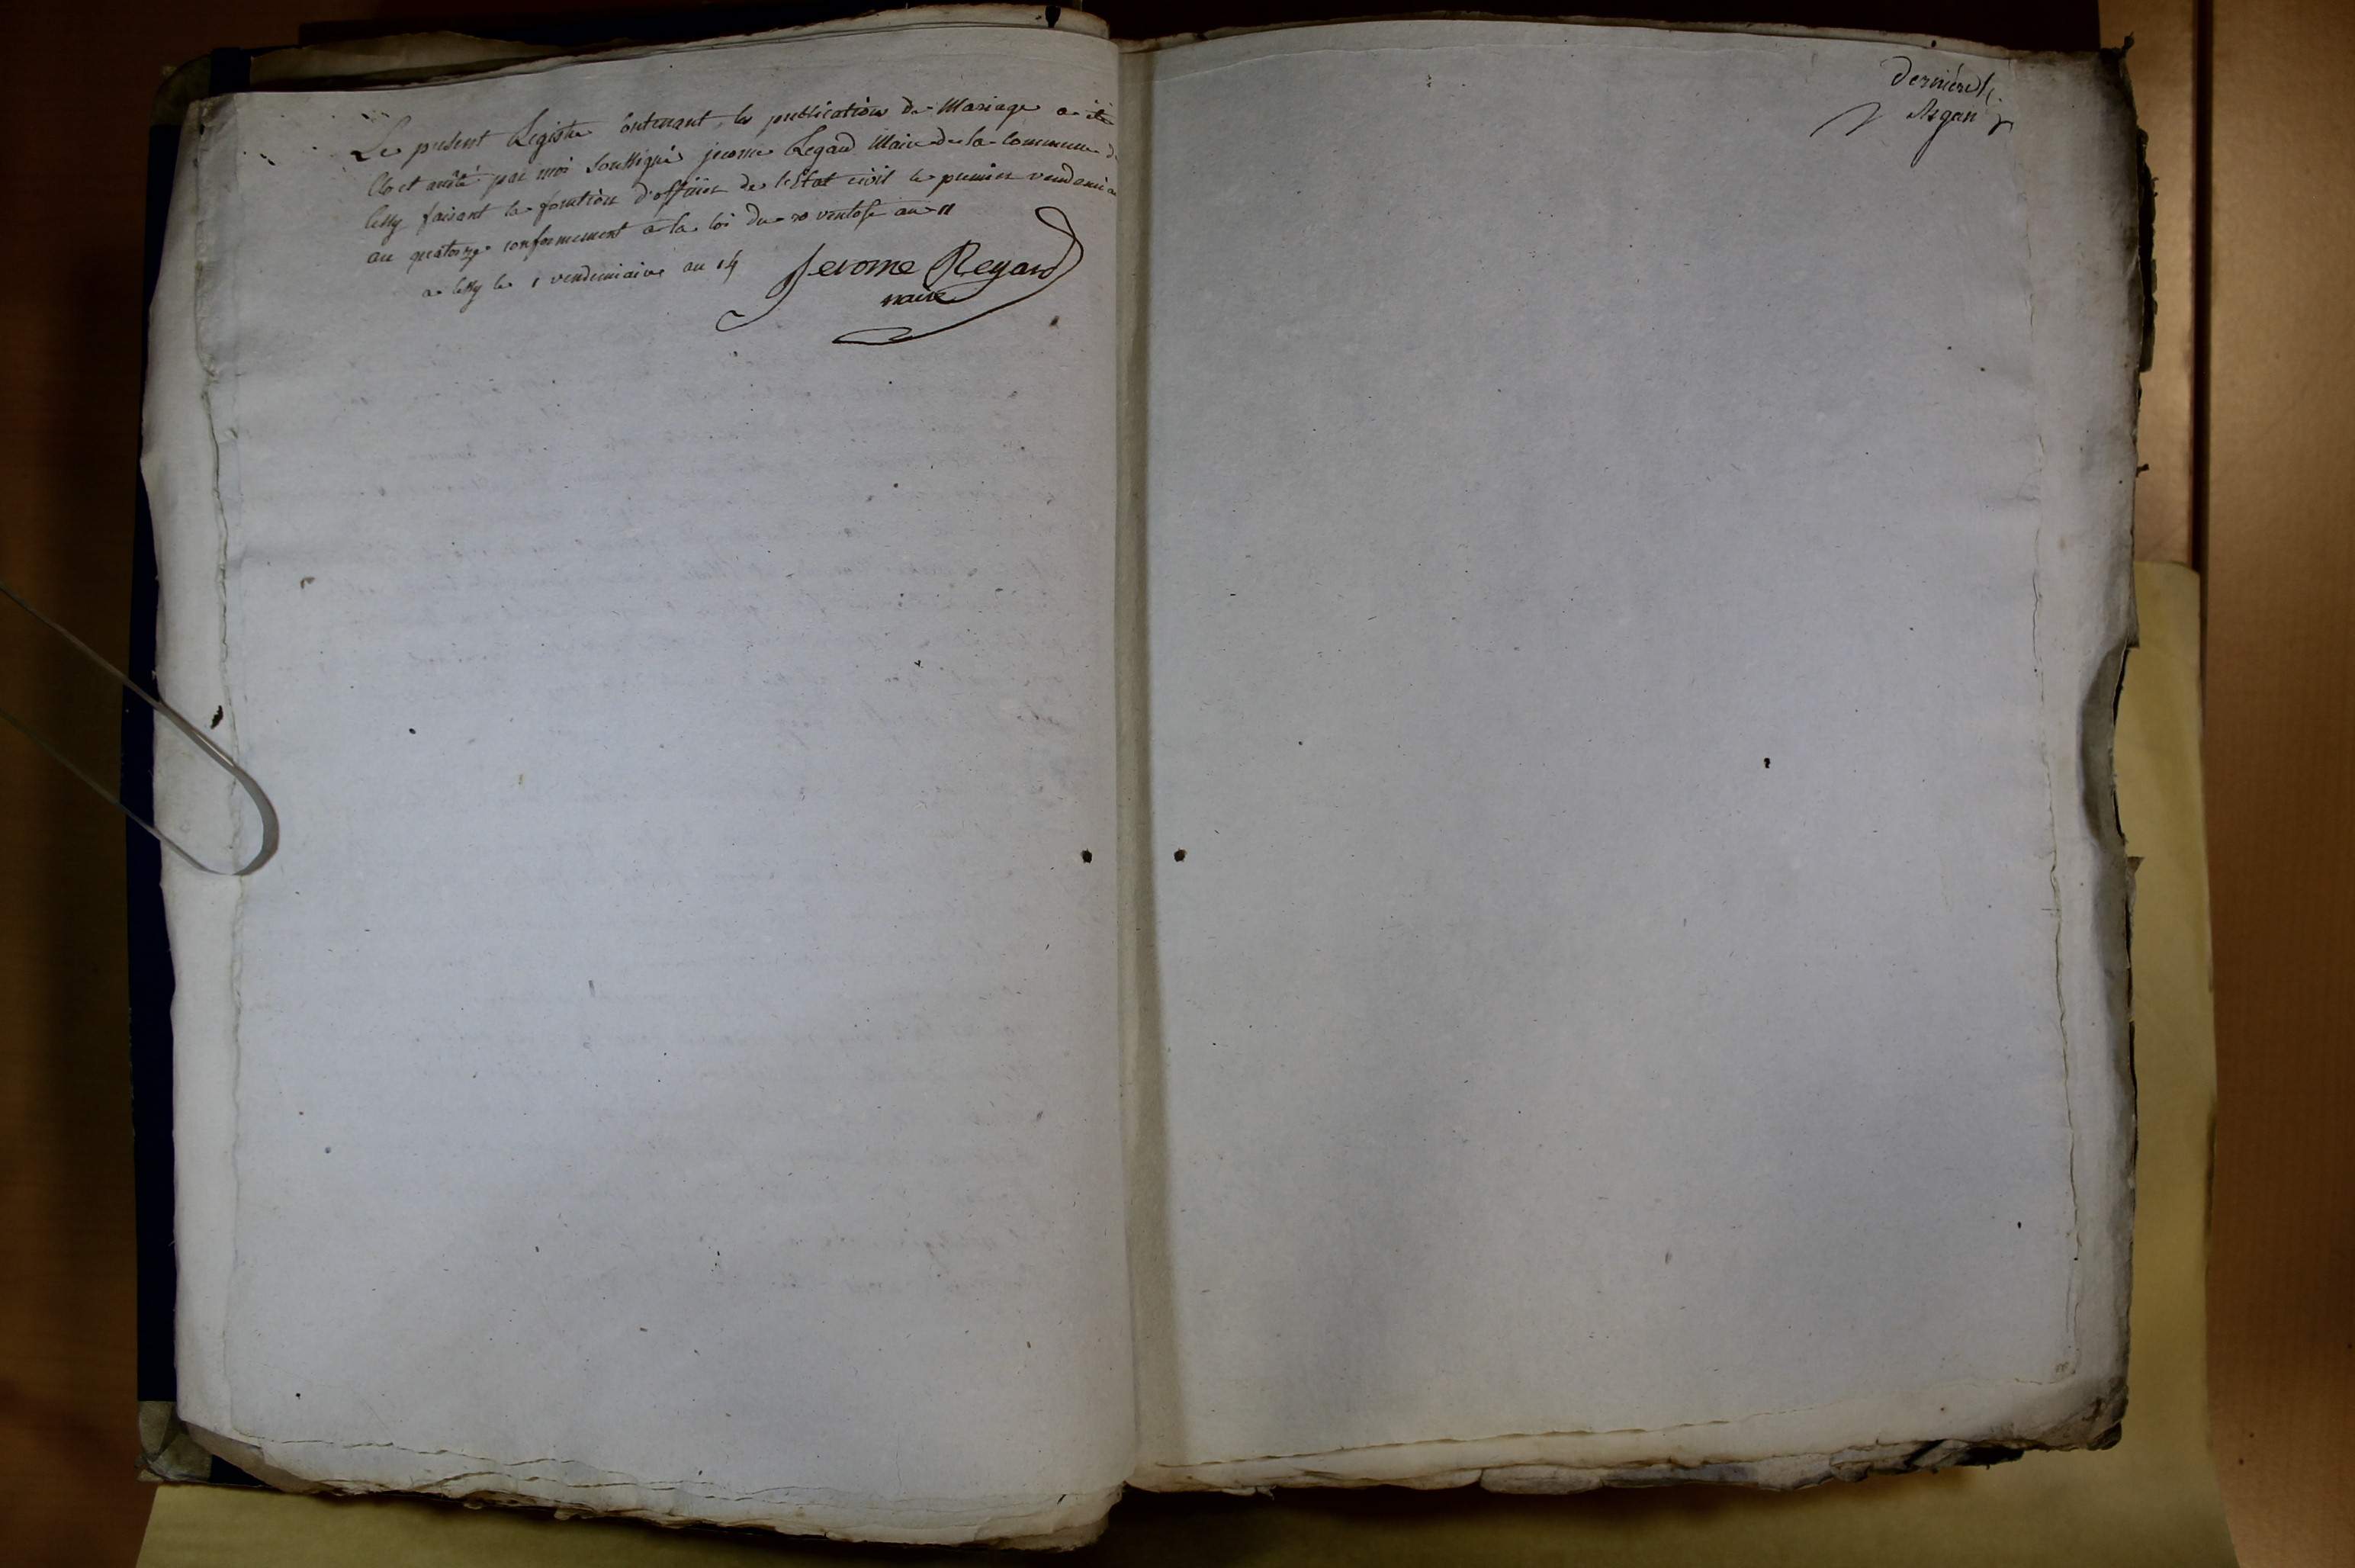 Le present Registre Contenant les publications de Mariage a été
Clo et arrêté par moi Soussigné jerome Regard Maire de la Commune de
lessy faisant la fonction d'officier de l'Etat civil le premier vendemia
an quatorze conformement a la loi du 20 ventose an 11
a lessy le 1 vendemiaire an 14
Jerome Regard
maire
dernière